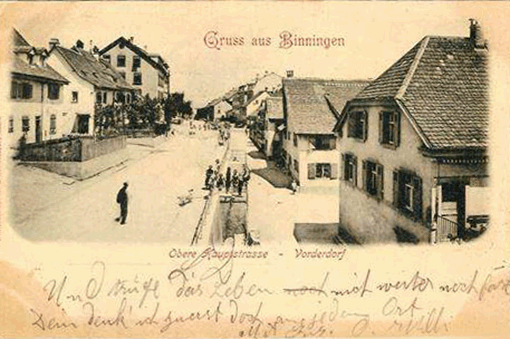 Gruss aus Binningen
Obere Hauptstrasse - Vorderdorf
Und trüge das Leben noch mich weiter noch
Dein denk' ich zuerst doch an jedem Ort.
Mit